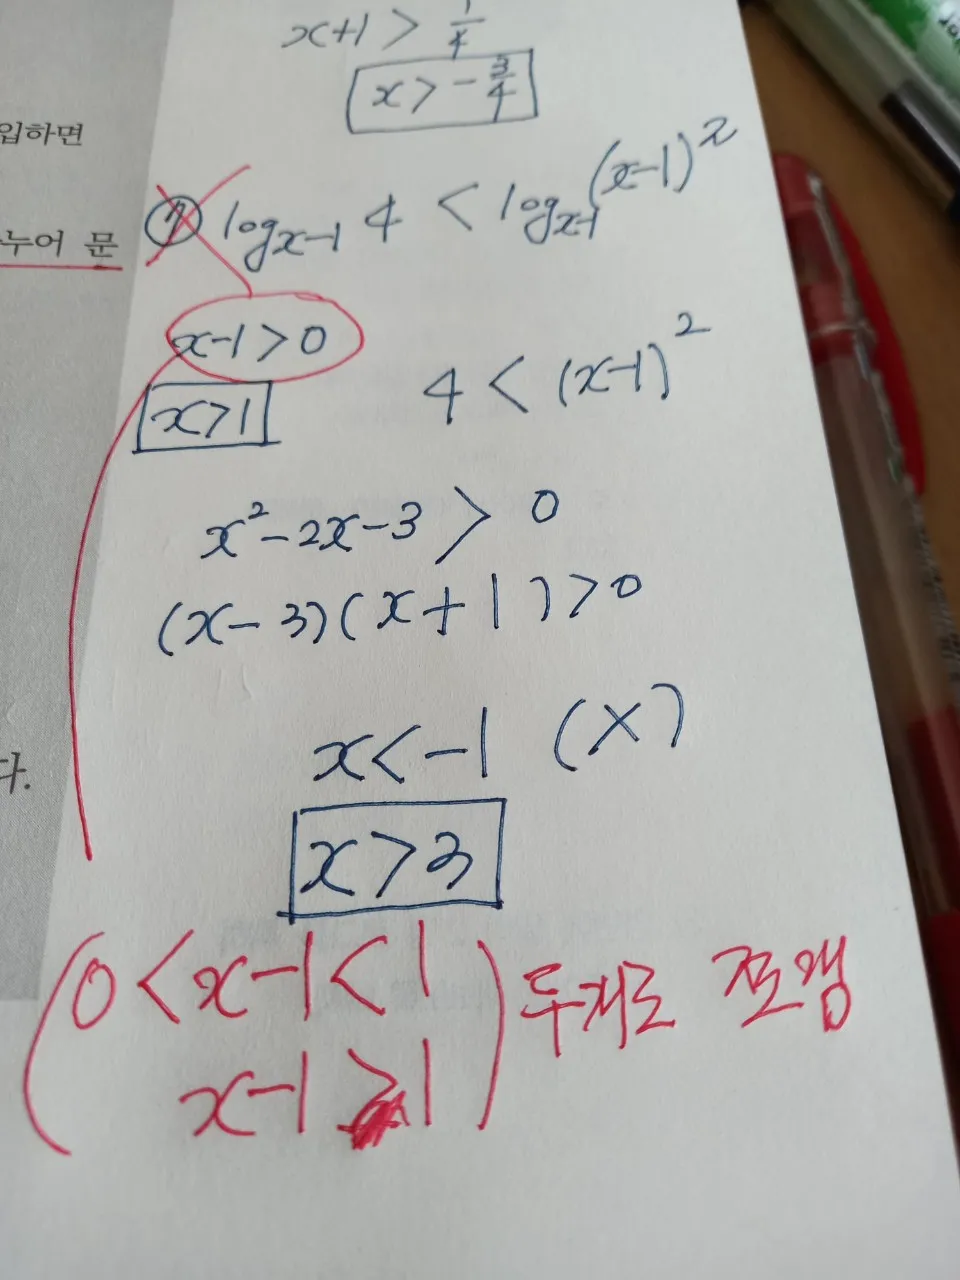 x+1 > 1/4
x > -3/4
입하면
누어 문
⑦ log_{x-1} 4 < log_{x-1} (x-1)²
x-1 > 0
x>1
4 < (x-1)²
x²-2x-3 > 0
(x-3)(x+1)>0
다.
x<-1 (X)
x>3
0<x-1<1
두개로 쪼갬
x-1>1